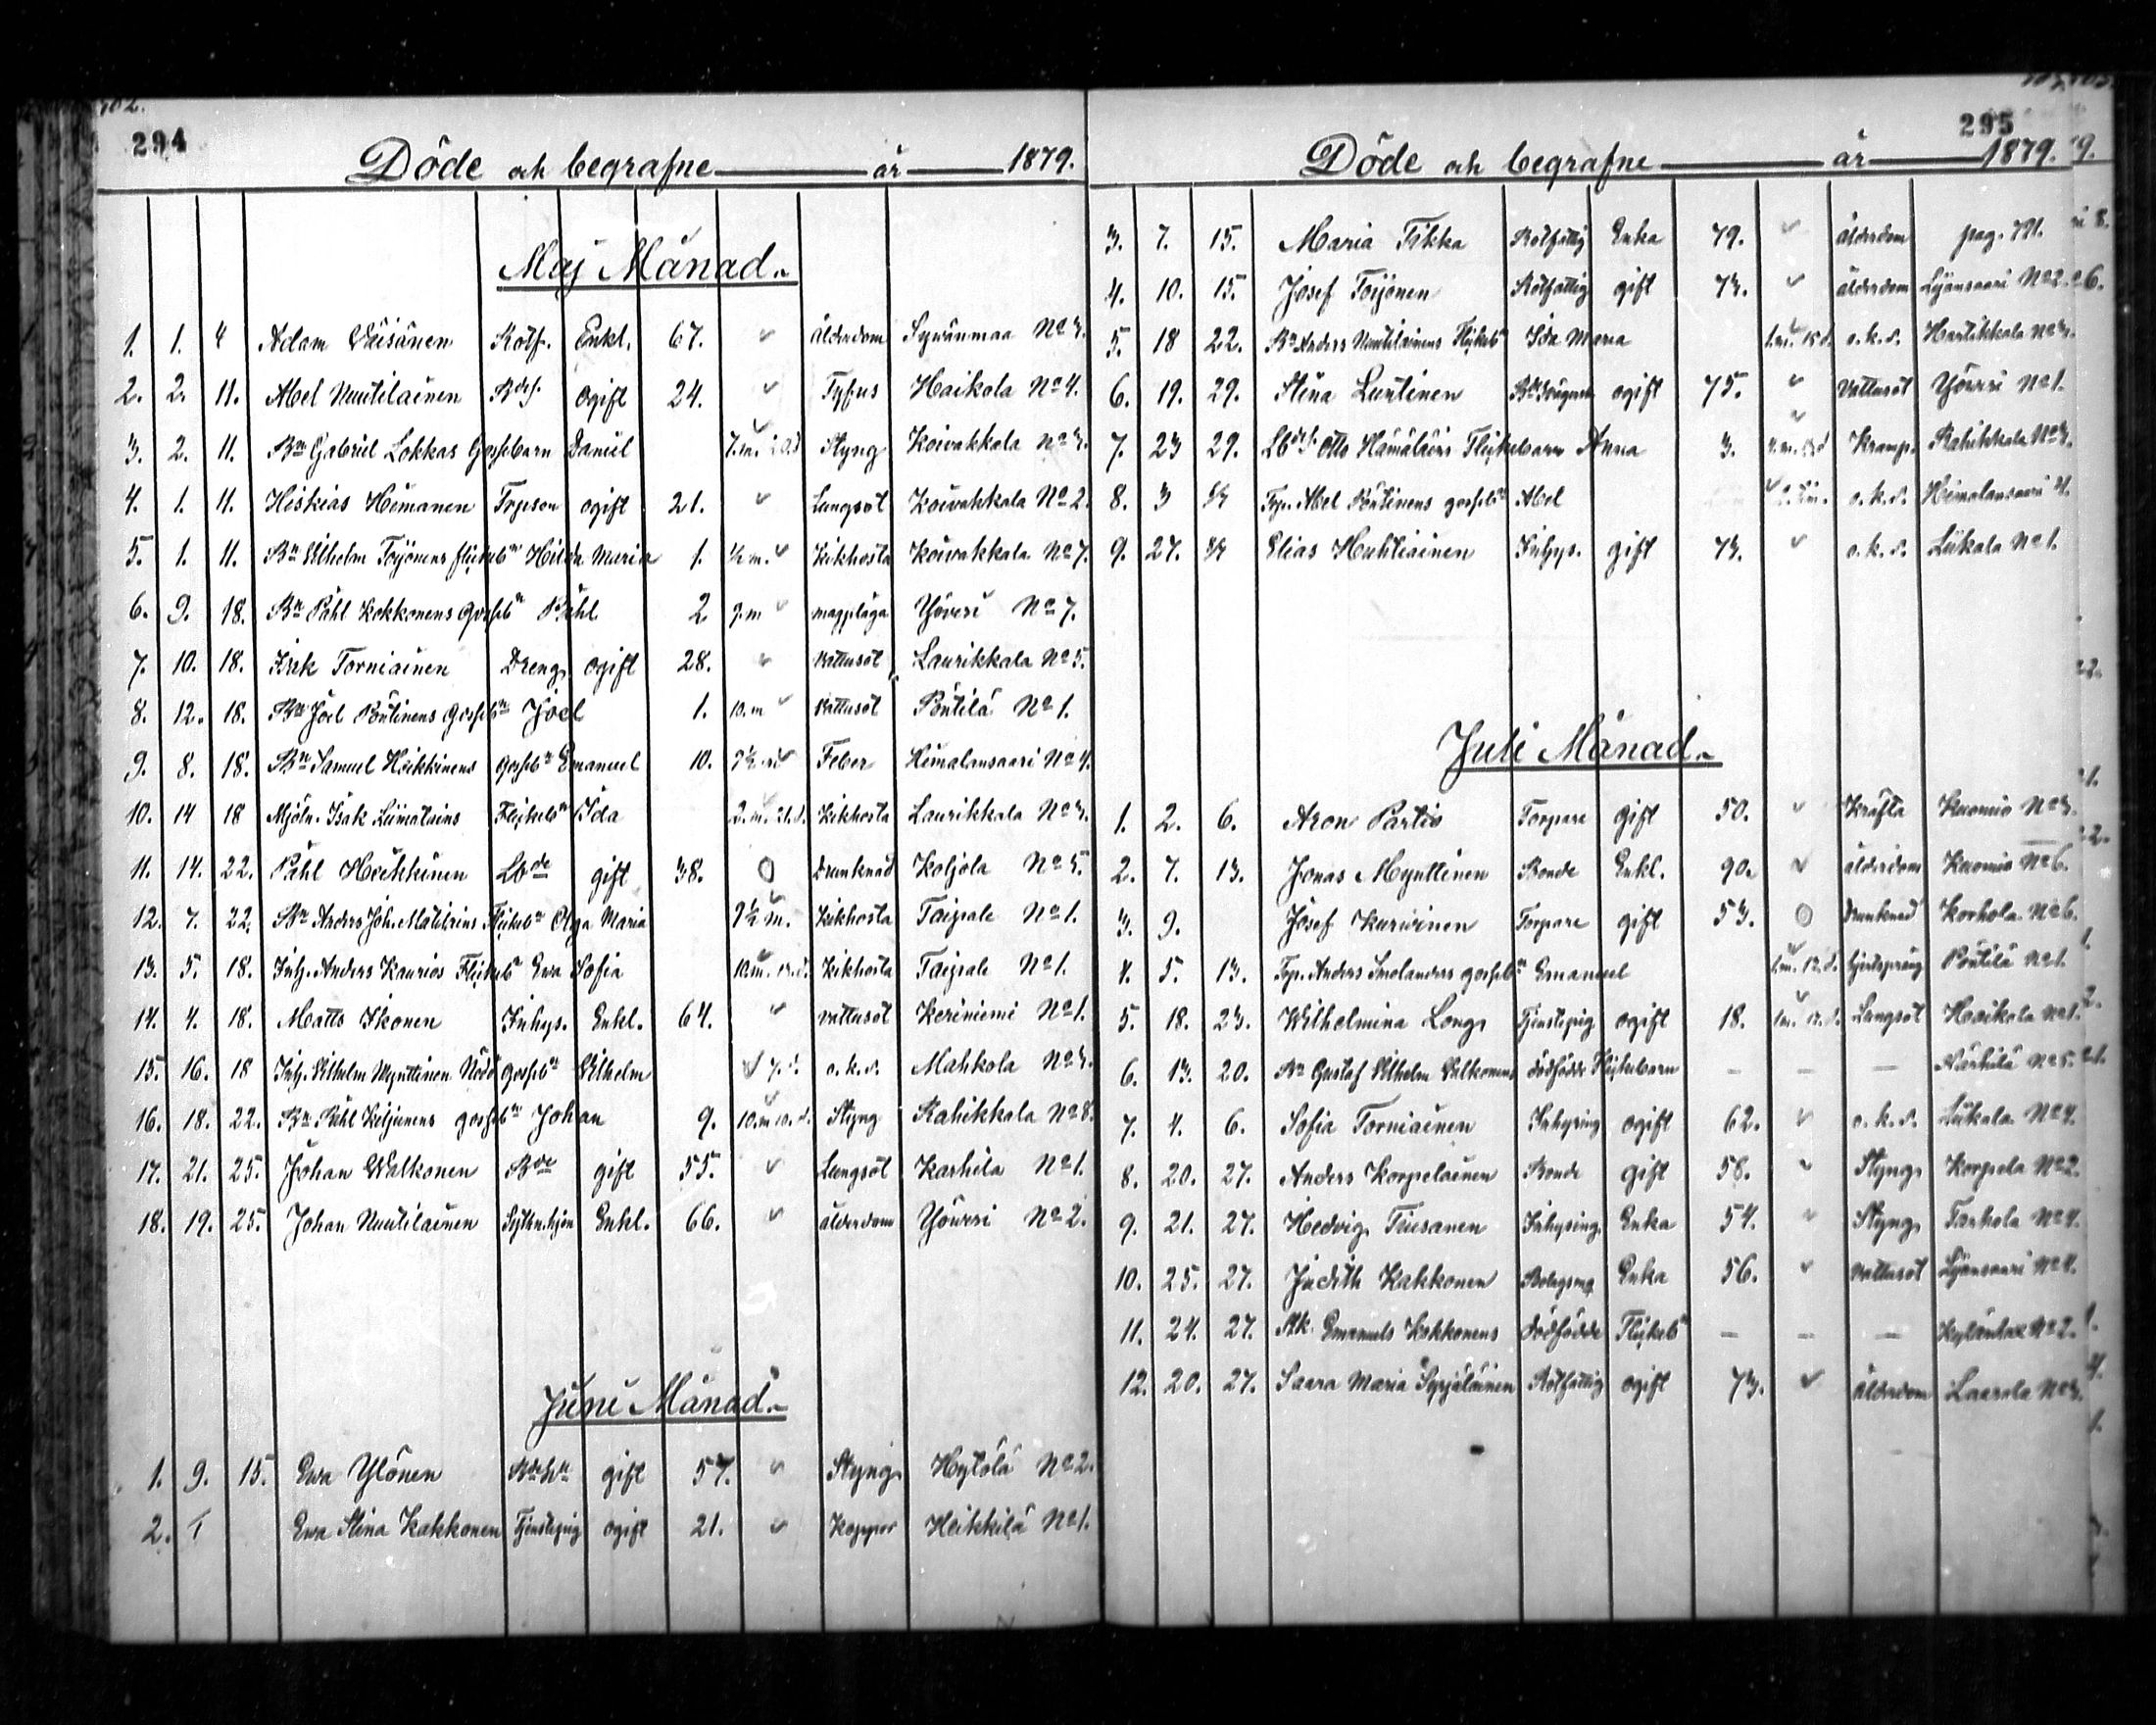 294
Döde och begrafne år 1879.
Maj Månad.
1. 1. 4 Adam Väisänen Rotf. Enkl. 67. ålderdom Sywänmaa No 3.
2. 2. 11. Abel Nuutilainen ogift 24. Tyfus Haikola No 4.
3. 2. 11. Bn Gabriel Lokkas Gossebarn Daniel 7.m. Styng Koivakkala No 3.
4. 1. 11. Hiskias Himanen Trpson ogift 21. Lungsot Koivakkala No 2.
5. 1. 11. Bn Vilhelm Töyönens flickebn Hilda Maria 1. 1/2 m. Kikhosta Koivakkala No 7.
6. 9. 18. Bn Påhl Kokkonens gossebn Påhl 2 9.m magplåga Yöveri No 7.
7. 10. 18. Isak Torniainen Dreng ogift 28. Vattusot Laurikkala No 5.
8. 12. 18. Bn Joel Pöntinens gossebn Joel 1. 10.m Vattusot Pöntilä No 1.
9. 8. 18. Bn Samuel Heikkinens gossebn Emanuel 10. Feber Himalansaari No 4.
10. 14 18 Mjöln. Isak Liimatains Flickebn Ida 2.m. 21.d. Kikhosta Laurikkala No 3.
11. 14. 22. Påhl Heikkinen Lbde gift 38. Drunknad Koljola No 5.
12. 7. 22. Bn Anders Joh. Matilains Flickebn Olga Maria 9½ m. Kikhosta Taipale No 1.
13. 5. 18. Inh. Anders Kaurias Flickebn Ewa Sofia 10.m. Kikhosta Taipale No 1.
14. 4. 18. Matts Ikonen Inhys. Enkl. 64. vattusot Keriniemi No 1.
15. 16. 18 Inh. Vilhelm Mynttinen gossebn Vilhelm 7.d. o.k.s. Mahkola No 3.
16. 18. 22. Bn Påhl Kiljunens gossebn Johan 9. 10.m 10.d. Styng Rahikkala No 8.
17. 21. 25. Johan Walkonen Bde gift 55. Lungsot Karhila No 1.
18. 19. 25. Johan Nuutilainen Enkl. 66. ålderdom Yöveri No 2.
Juni Månad.
1. 9. 15. Ewa Ylönen gift 57. Styng Hytölä No 2.
2. Ewa Stina Kakkonen Tjenstepig ogift 21. Koppor Heikkilä No 1.
295
Döde och begrafne år 1879.
3. 7. 15. Maria Tikka Rotfattig Enka 79. ålderdom pag. 791.
4. 10. 15. Josef Töyönen Rotfattig gift 73. ålderdom Lyänsaari No 2.
5. 18 22. Bn Anders Nuutilainens Flickebn Ida Maria 1.m. 15 d. o.k.s. Hartikkala No 3.
6. 19. 29. Stina Luntinen ogift 75. Vattusot Yöveri No 1.
7. 23 29. Otto Hämäläins Flickebarn Anna 3. Kramp. Rahikkala No 3.
8. 3 Trp. Abel Pöntinens gossebn Abel o.k.s. Himalansaari 4.
9. 27. Elias Huhtiainen Inhys. gift 73. o.k.s. Liikala No 1.
Juli Månad.
1. 2. 6. Aron Partio Torpare gift 50. Kräfta Kuomio No 3.
2. 7. 13. Jonas Mynttinen Bonde Enkl. 90. ålderdom Kuomio No 6.
3. 9. Josef Kurvinen Torpare gift 53. Drunknad Korhola No 6.
4. 5. 13. Trp. Anders Smolanders gossebn Emanuel 1.m. 12.d. Pöntilä No 1.
5. 18. 23. Wilhelmina Long Tjenstepig ogift 18. Lungsot Haikola No 1.
6. 13. 20. Bn Gustaf Vilhelm Valkonens dödfödde Flickebarn — — — Närhilä No 5.
7. 4. 6. Sofia Torniainen Inhysing ogift 62. o.k.s. Liikala No 4.
8. 20. 27. Anders Korpelainen Bonde gift 58. Styng Korpela No 2.
9. 21. 27. Hedvig Tiusanen Inhysing Enka 54. Styng Tarhola No 4.
10. 25. 27. Judith Kakkonen Bolagsm. Enka 56. Vattusot Lyänsaari No 4.
11. 24. 27. Emanuels Kokkonens dödfödde Flickebn — — — No 2.
12. 20. 27. Saara Maria Syrjäläinen Rotfattig ogift 73. ålderdom Laarola No 3.